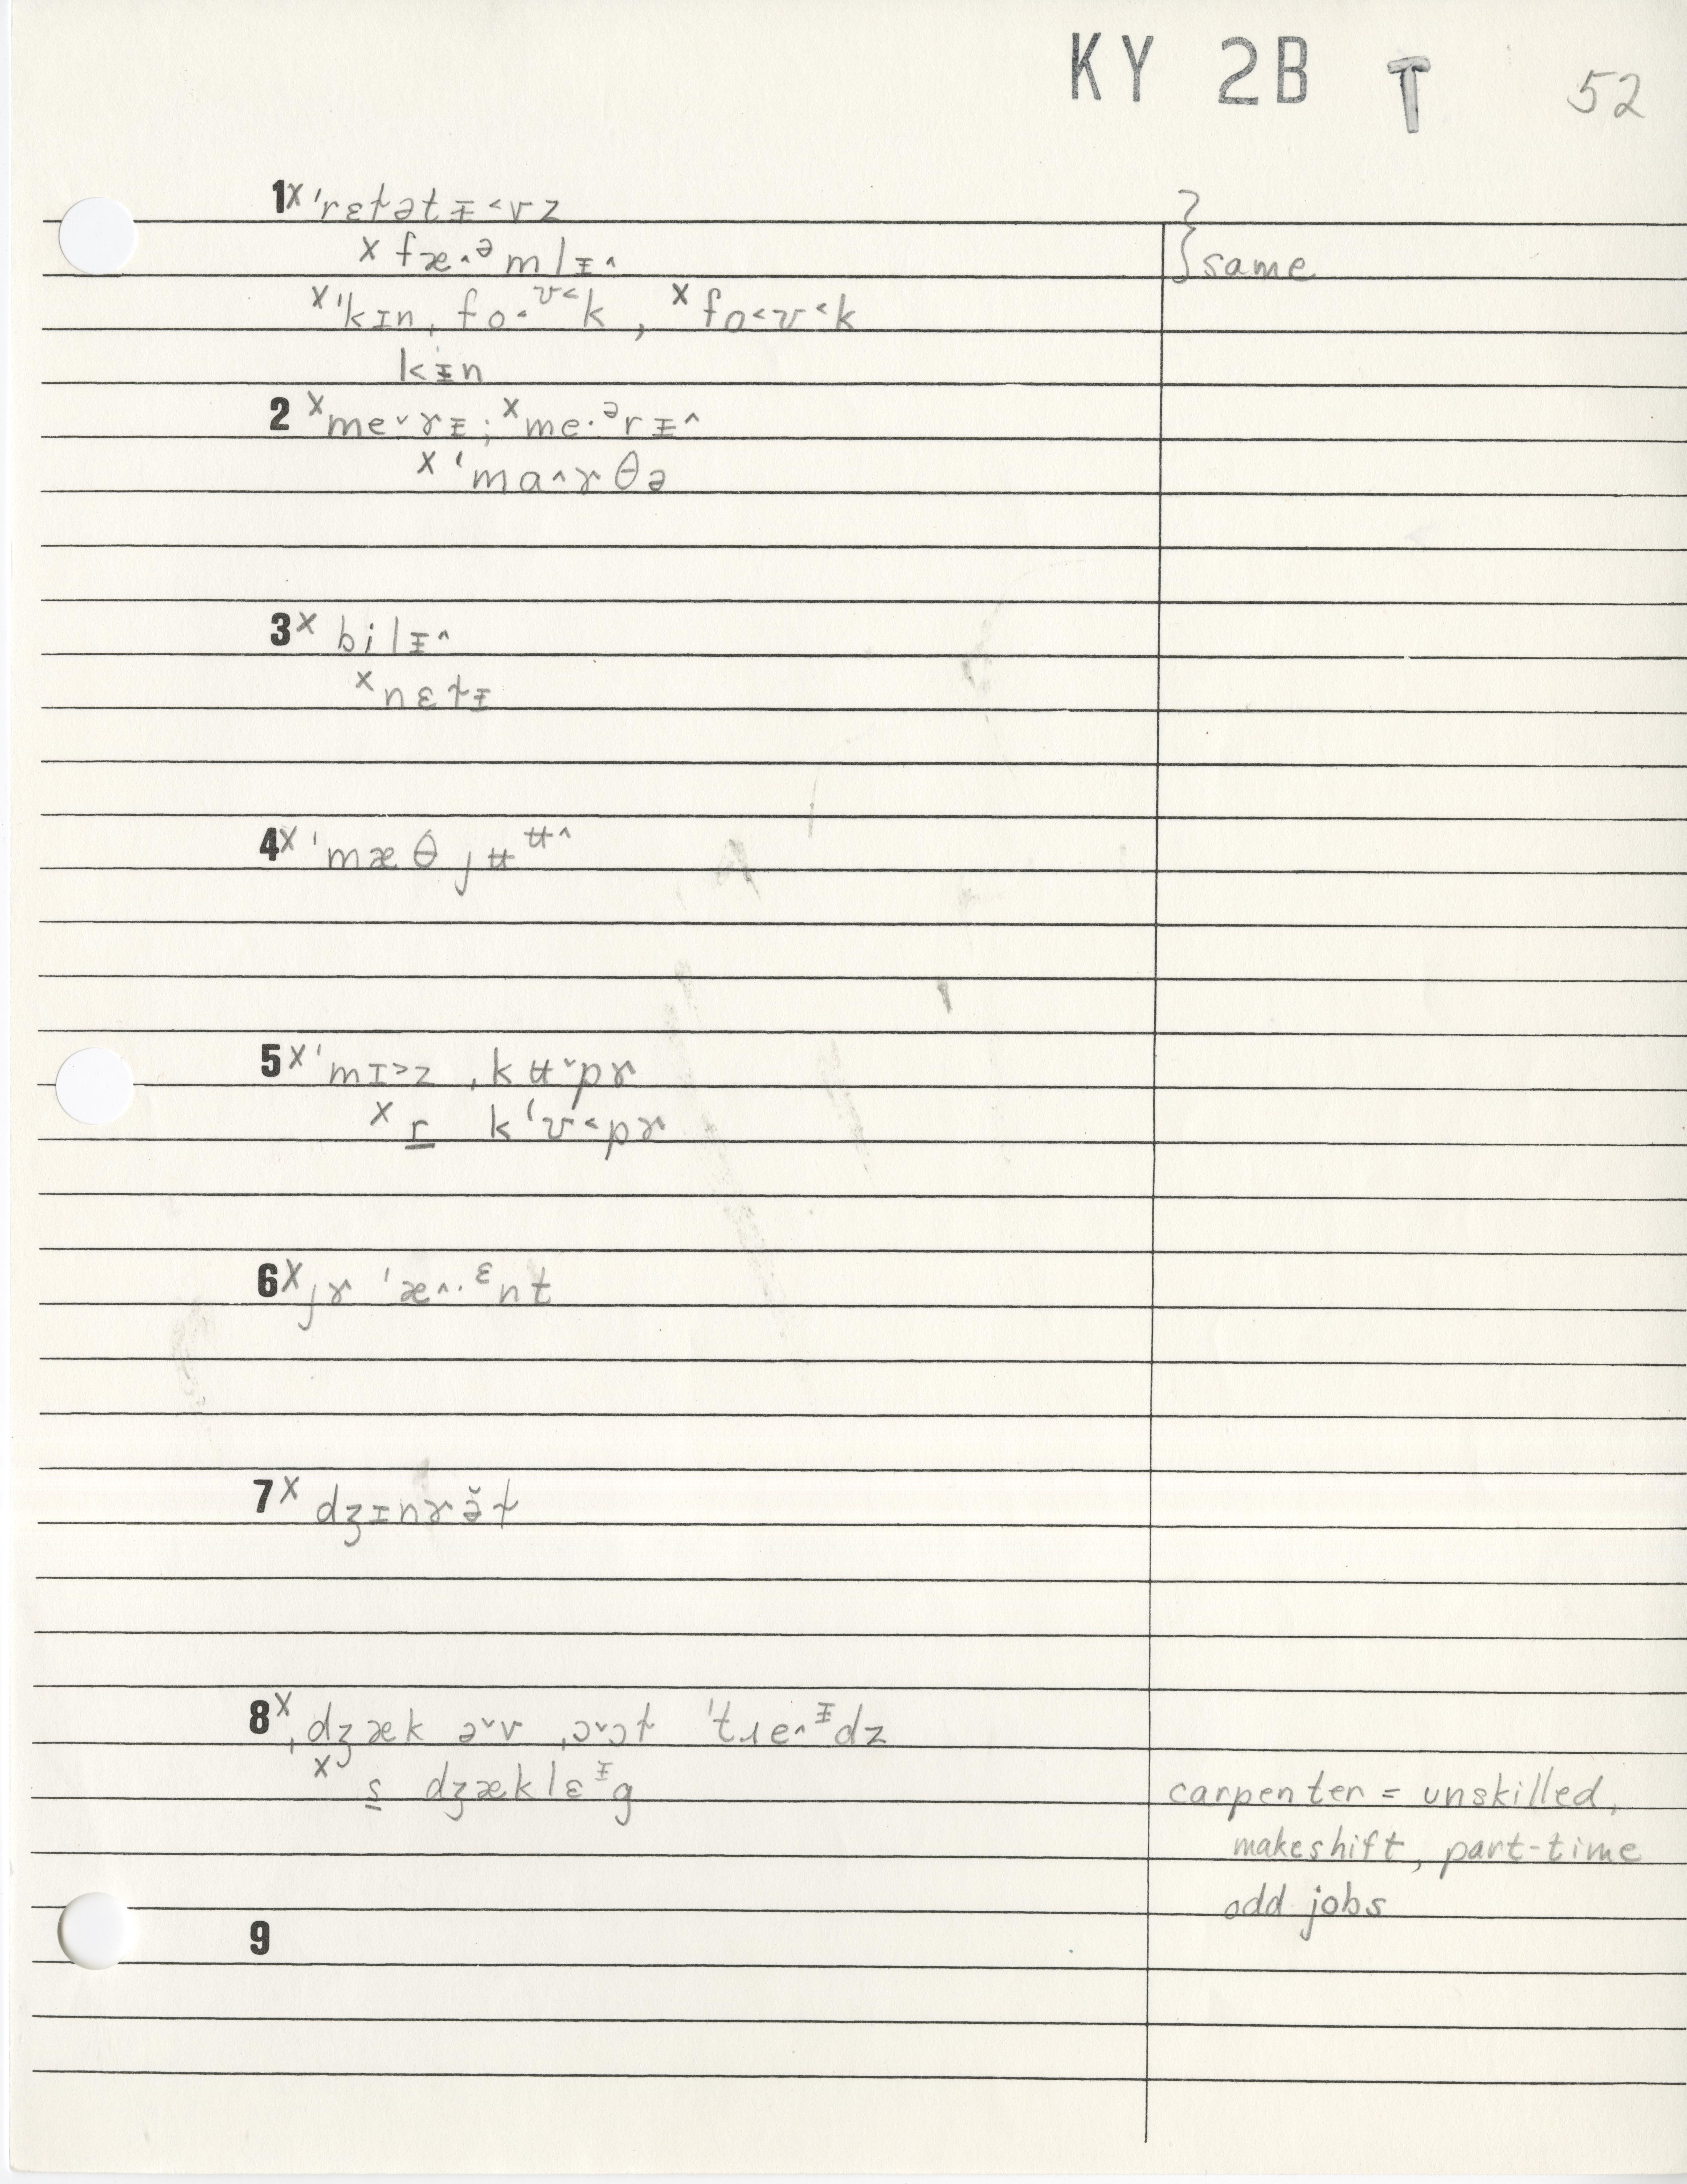 KY 2B T 52
1ˣ ˈrɛɫətᵻ˂vz
ˣ fæ˄·ᵊmlᵻ˄ } same
ˣ ˈkɪnˌfo˂ᶷ˂k, ˣ fo˂ʊ˂k
kᵻn
2 ˣ me˅ɤᵻ; ˣ me·ᵊrᵻ˄
ˣ ˈmɑ˄ɤθə
3ˣ bilᵻ˄
ˣ nɛɫᵻ
4ˣ ˈmæθjʉᶶ˄
5ˣ ˈmɪ˃z ˌkʉ˅pɤ
ˣ r kʻʊ˂pɤ
6ˣ jɤ ˈæ˄·ᵋnt
7ˣ dʒɪnɤə̆ɫ
8ˣ ˌdʒæk ə˅v ˌɔ˅ɔɫ ˈtɹe˄ᵻdz
ˣ s dʒæklɛᵻg carpenter = unskilled,
makeshift, part-time
odd jobs
9